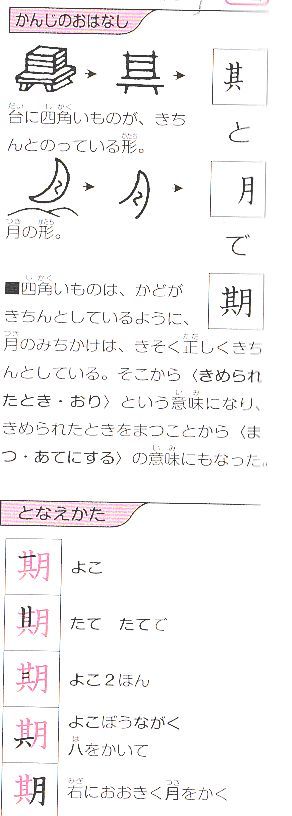 かんじのおはなし
其
台に四角いものが、きち
んとのっている形。
と
月
月の形。
で
期
■四角いものは、かどが
きちんとしているように、
月のみちかけは、きそく正しくきち
んとしている。そこから〈きめられ
たとき・おり〉という意味になり、
きめられたときをまつことから〈ま
つ・あてにする〉の意味にもなった。
となえかた
期 よこ
期 たて たてで
期 よこ2ほん
期 よこぼうながく
八をかいて
期 右におおきく月をかく